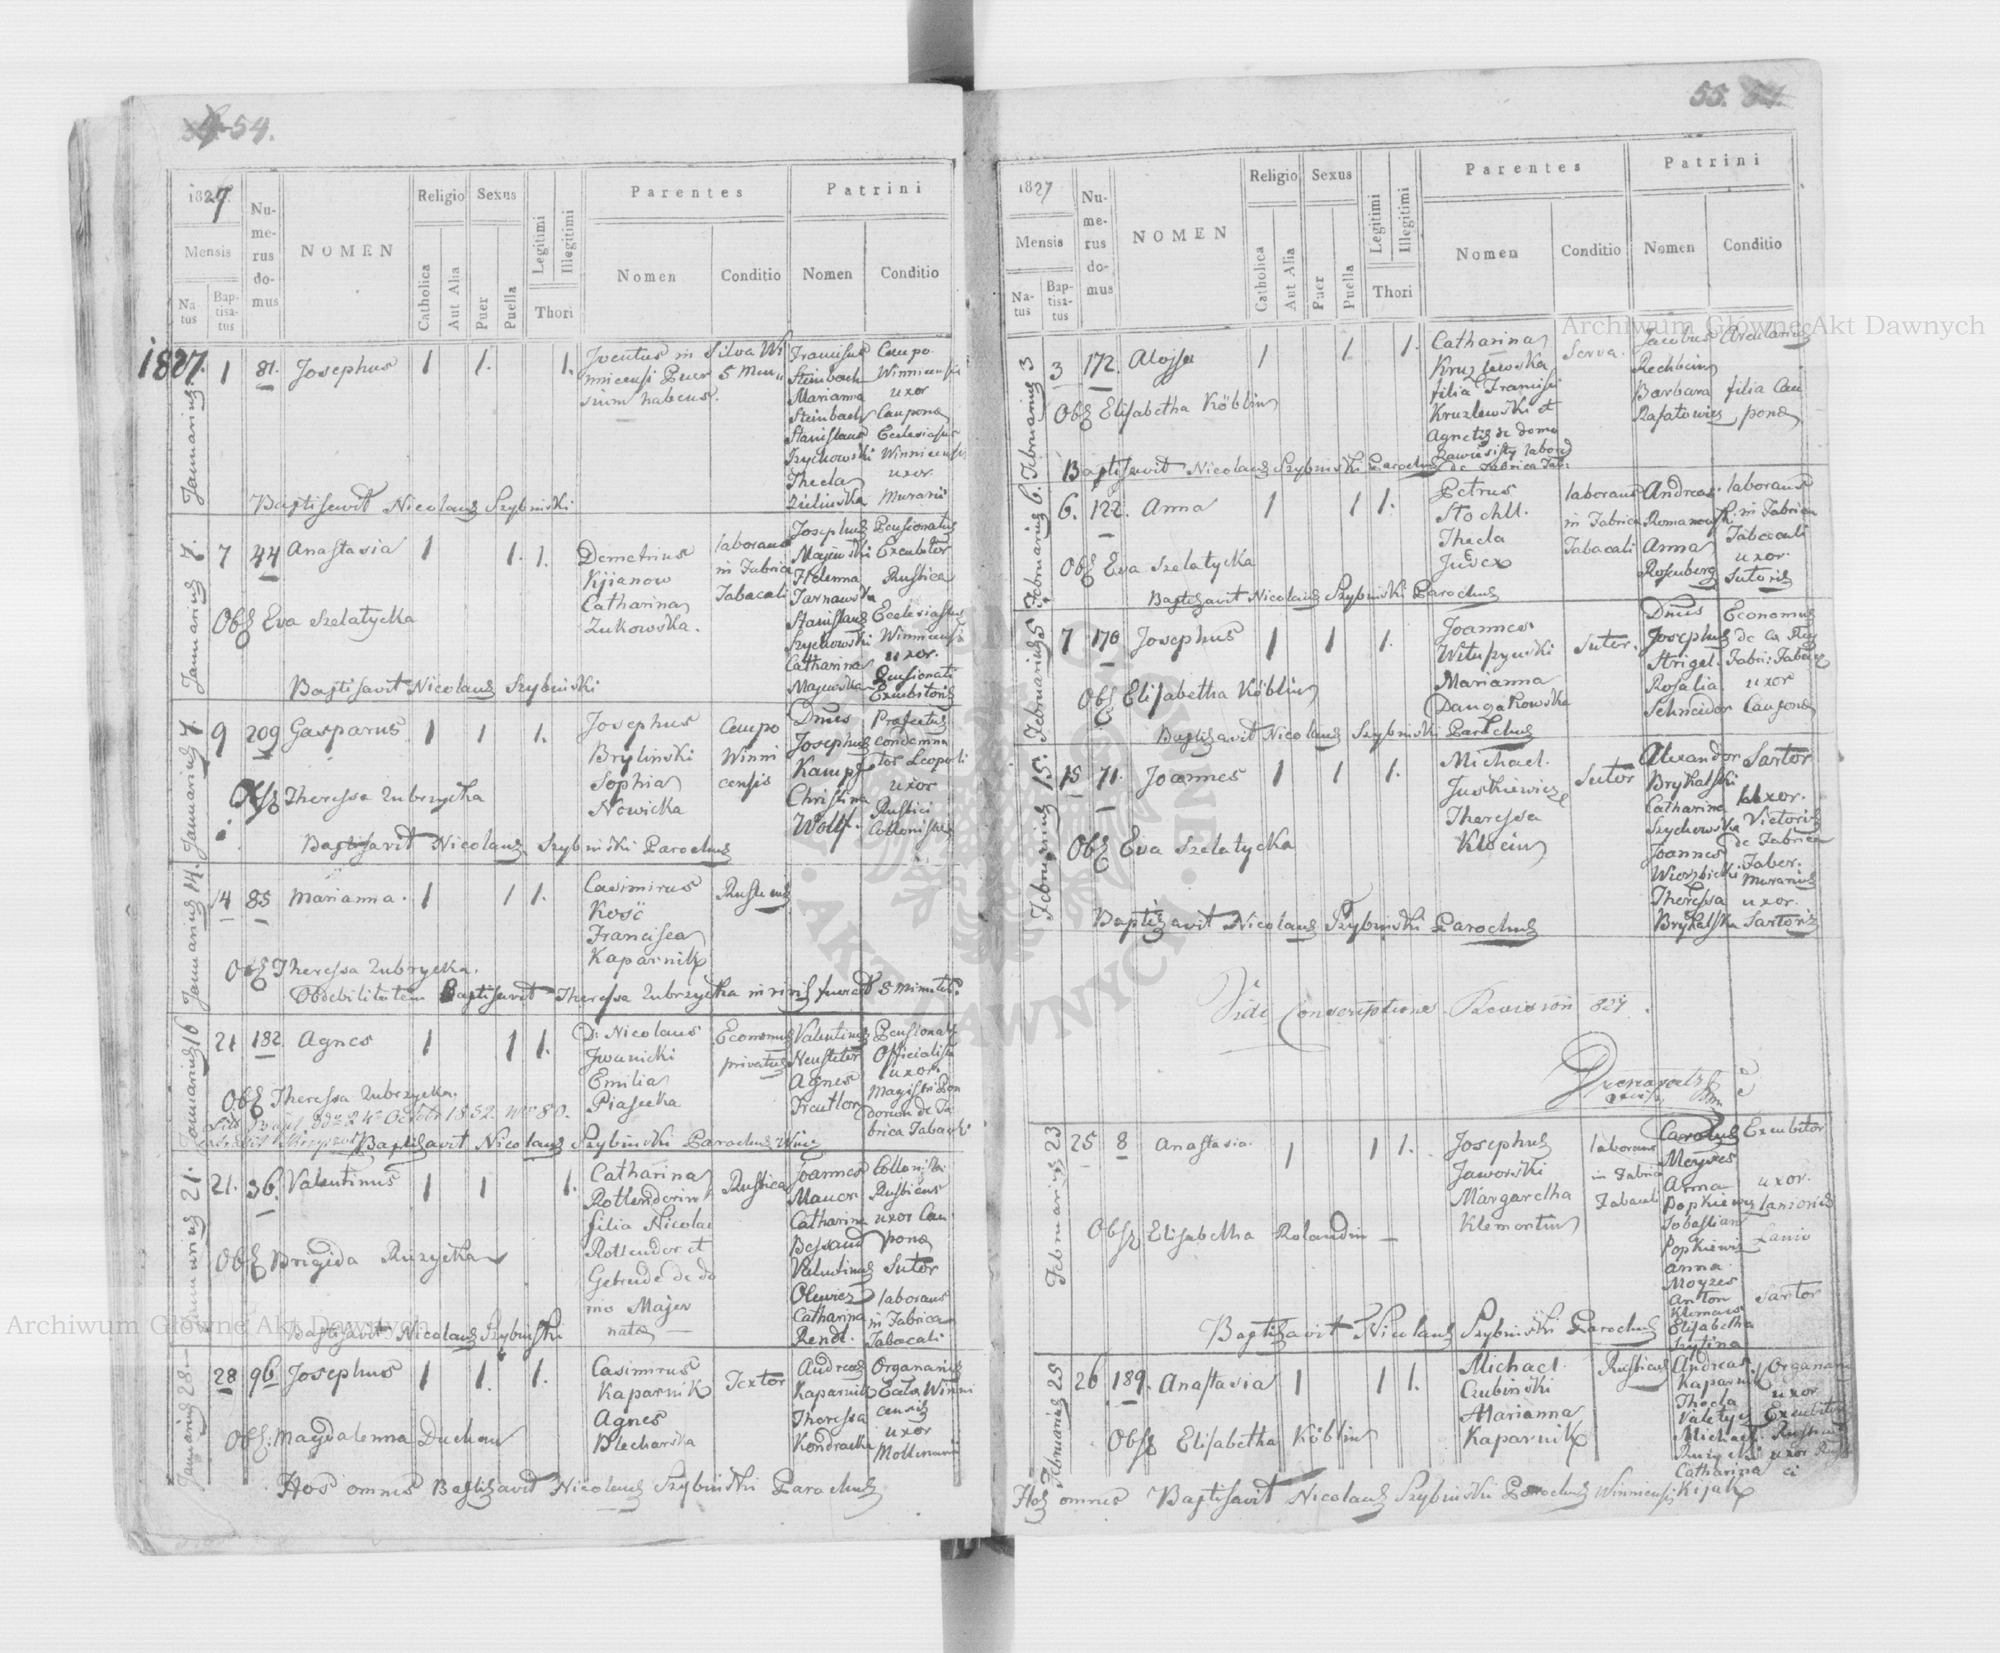 54.
1827
Mensis
Na-
tus
Bap-
tisa-
tus
Nu-
me-
rus
do-
mus
NOMEN
Religio
Catholica
Aut Alia
Sexus
Puer
Puella
Legitimi
Illegitimi
Thori
Parentes
Nomen
Conditio
Patrini
Nomen
Conditio
1827.
Januarius
1 81. Josephus 1 1. 1.
Inventus in Silva Wi
nnicensi Puer 5 Men
sium habens.
Franciscus Caupo
Steinbach Winnicensis
Marianna uxor
Steinbach Caupona
Stanislaus Ecclesiasus
Szychowski Winnicensis
Thecla uxor
Zielinska Murarii
Baptisavit Nicolaus Szybinski
Januarius 7.
7 44 Anastasia 1 1. 1.
Demetrius laborans
Kijanow in Fabrica
Catharina Tabacali
Zukowska.
Josephus Pensionatus
Majewski Excubitor
Helenna Rustica
Tarnawska
Stanislaus Ecclesiasus
Szychowski Winnicensis
uxor.
Catharina Pensionati
Majewska Excubitoris
Obs Eva Szelatycka
Baptisavit Nicolaus Szybinski
Januarius 7.
9 209 Gasparus 1 1 1.
Josephus Caupo
Brylinski Winni
Sophia censis
Nowicka
Dnus Prafectus
Josephus condemna
Kampf tor Leopoli
Christina uxor
Wolf. Rustici
Collonistae
Obs Theressa Zubrzycka
Baptisavit Nicolaus Szybinski Parochus
Januarius 14.
14 85 Marianna. 1 1 1.
Casimirus Rusticus
Kość
Francisca
Kaparnik
Obs Theressa Zubrzycka.
Ob debilitatem Baptisavit Theressa Zubrzycka in vivis fuerat 5 minutes.
Januarius 16
21 182. Agnes 1 1 1.
D: Nicolaus Economus
Iwanicki privatus
Emilia
Piasecka
Valentinus Pensionat
Neusteter Officialista
Agnes uxor
Treutler Magistri Pon
dorum de Fa
brica Tabacki
Obs Theressa Zubrzycka.
Baptisavit Nicolaus Szybinski Parochus
Januarius 21.
21. 36. Valentinus 1 1 1.
Catharina Rustica
Rottenderin
filia Nicolai
Rottender et
Getrude de do
mo Majer
nata —
Joannes Collonista
Mauer Rusticus
Catharina uxor Cau
Bessand pona
Valentinus Sutor
Olewicz laborans
Catharina in Fabrica
Rendl. Tabacali
Obs Brigida Ruzycka
Baptisavit Nicolaus Szybinski
Januarius 28.
28 96 Josephus 1 1. 1.
Casimirus Textor
Kaparnik
Agnes
Blecharska
Andreas Organarius
Kaparnik Eccla Winni
Theressa censis
Kondracka uxor
Mollinarii
Obs. Magdalenna Duchon
Hos omnes Baptisavit Nicolaus Szybinski Parochus
55.
1827
Mensis
Na-
tus
Bap-
tisa-
tus
Nu-
me-
rus
do-
mus
NOMEN
Religio
Catholica
Aut Alia
Sexus
Puer
Puella
Legitimi
Illegitimi
Thori
Parentes
Nomen
Conditio
Patrini
Nomen
Conditio
Februarius 3
3 172. Aloysa 1 1. 1.
Catharina Serva.
Kruzlewska
filia Francisci
Kruzlewski et
Agnetis de domo
Jacobus Arcularius
Rechbein
Barbara filia Cau
Rafatowicz pona
Obs Elisabetha Köblin
Baptisavit Nicolaus Szybinski Parochus
Februarius 6.
6. 122. Anna 1 1 1.
Petrus laborans
Stochll. in Fabrica
Thecla Tabacali
Andreas laborans
Romanowski in Fabrica
Anna Tabacali
uxor.
Rosenberg Sutoris
Obs Eva Szelatycka
Baptisavit Nicolaus Szybinski Parochus
Februarius 5
7 170 Josephus 1 1 1.
Joannes Sutor.
Marianna
Dnus Economus
Josephus
Strigel.
Rosalia uxor
Schneider Caupona
Obs Elisabetha Köblin
Baptizavit Nicolaus Szybinski Parochus
Februarius 15.
15 71. Joannes 1 1 1.
Michael. Sutor
Juskiewicz
Theressa
Klocin
Alexander Sartor
Brykalski
Catharina uxor.
Szychowska Victoris
de Fabrica
Joannes Faber.
Wierzbicki Murarius
Theressa uxor.
Brykalska Sartoris
Obs Eva Szelatycka
Baptizavit Nicolaus Szybinski Parochus
Februarius 23
25 8 Anastasia. 1 1 1.
Josephus laborans
Jaworski in Fabrica
Margaretha Tabacali
Klementin
Carolus Excubitor
Moyzes
Anna uxor.
Popkiewicz Lanionis
Sobastian
Popkiewicz Lanio
Anna
Moyzes
Anton Sartor
Klemens
Elisabetha
Obs Elisabetha Rolandin —
Baptizavit Nicolaus Szybinski Parochus
Februarius 25
26 189. Anastasia 1 1 1.
Michael Rusticus
Czubinski
Marianna
Kaparnik
Andreas Organarii
Kaparnik
uxor
Thecla
Michael
Catharina
Kijak
Obs Elisabetha Köblin
Hos omnes Baptisavit Nicolaus Szybinski Parochus Winnicensis
Archiwum Główne Akt Dawnych
Archiwum Główne Akt Dawnych